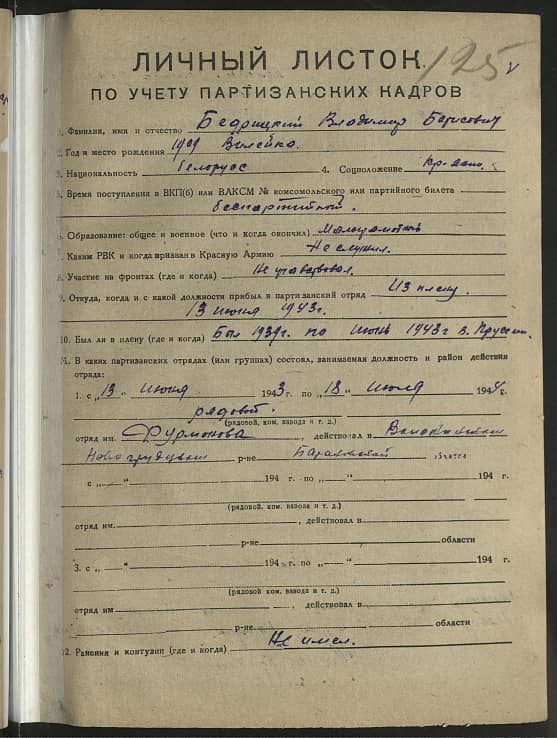 125 v
ЛИЧНЫЙ ЛИСТОК
ПО УЧЕТУ ПАРТИЗАНСКИХ КАДРОВ
1. Фамилия, имя и отчество Бедрицкий Владимир Борисович
2. Год и место рождения 1909 Вилейка
3. Национальность белорус 4. Соцположение
5. Время поступления в ВКП(б) или ВЛКСМ № комсомольского или партийного билета
беспартийный.
6. Образование: общее и военное (что и когда окончил) Малограмотный
7. Каким РВК и когда призван в Красную Армию Не служил.
8. Участие на фронтах (где и когда) Не участвовал.
9. Откуда, когда и с какой должности прибыл в партизанский отряд Из плену.
13 июня 1943г.
10. Был ли в плену (где и когда) Был 1939г. по июнь 1943г в. Пруссии.
11. В каких партизанских отрядах (или группах) состоял, занимаемая должность и район действия
отряда:
1. с „13" июня 1943 г. по „18" июля 1944 г.
рядовой.
(рядовой, ком. взвода и т. д.)
отряд им. Фурмонова, действовал в
Новогрудском р-не области
с „ " 194 г. по „ " 194 г.
(рядовой, ком. взвода и т. д.)
отряд им. , действовал в
р-не области
3. с „ " 194 г. по „ " 194 г.
(рядовой, ком. взвода и т. д.)
отряд им , действовал в
р-не области
12. Ранения и контузии (где и когда) Не имел.